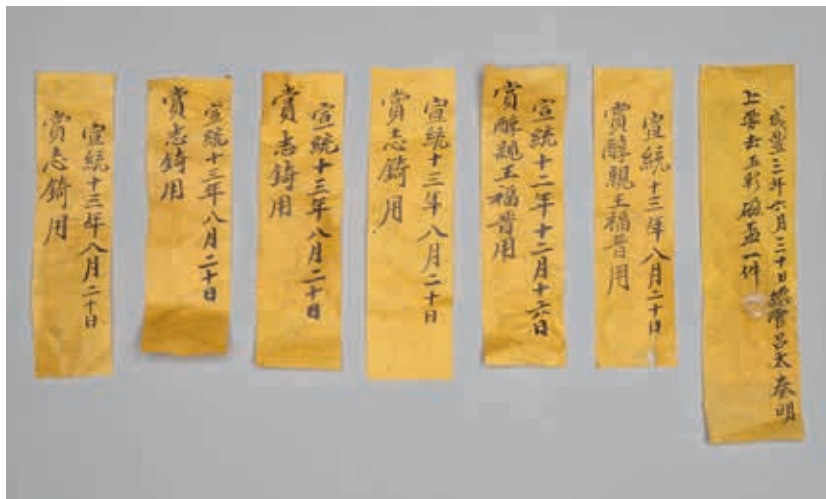 咸豐三年六月二十日總管呂太奉明
上要去五彩磁盃一件
宣統十三年八月二十日
賞醇親王福晋用
宣統十二年十二月十六日
賞醇親王福晋用
宣統十三年八月二十日
賞志錡用
宣統十三年八月二十日
賞志錡用
宣統十三年八月二十日
賞志錡用
宣統十三年八月二十日
賞志錡用